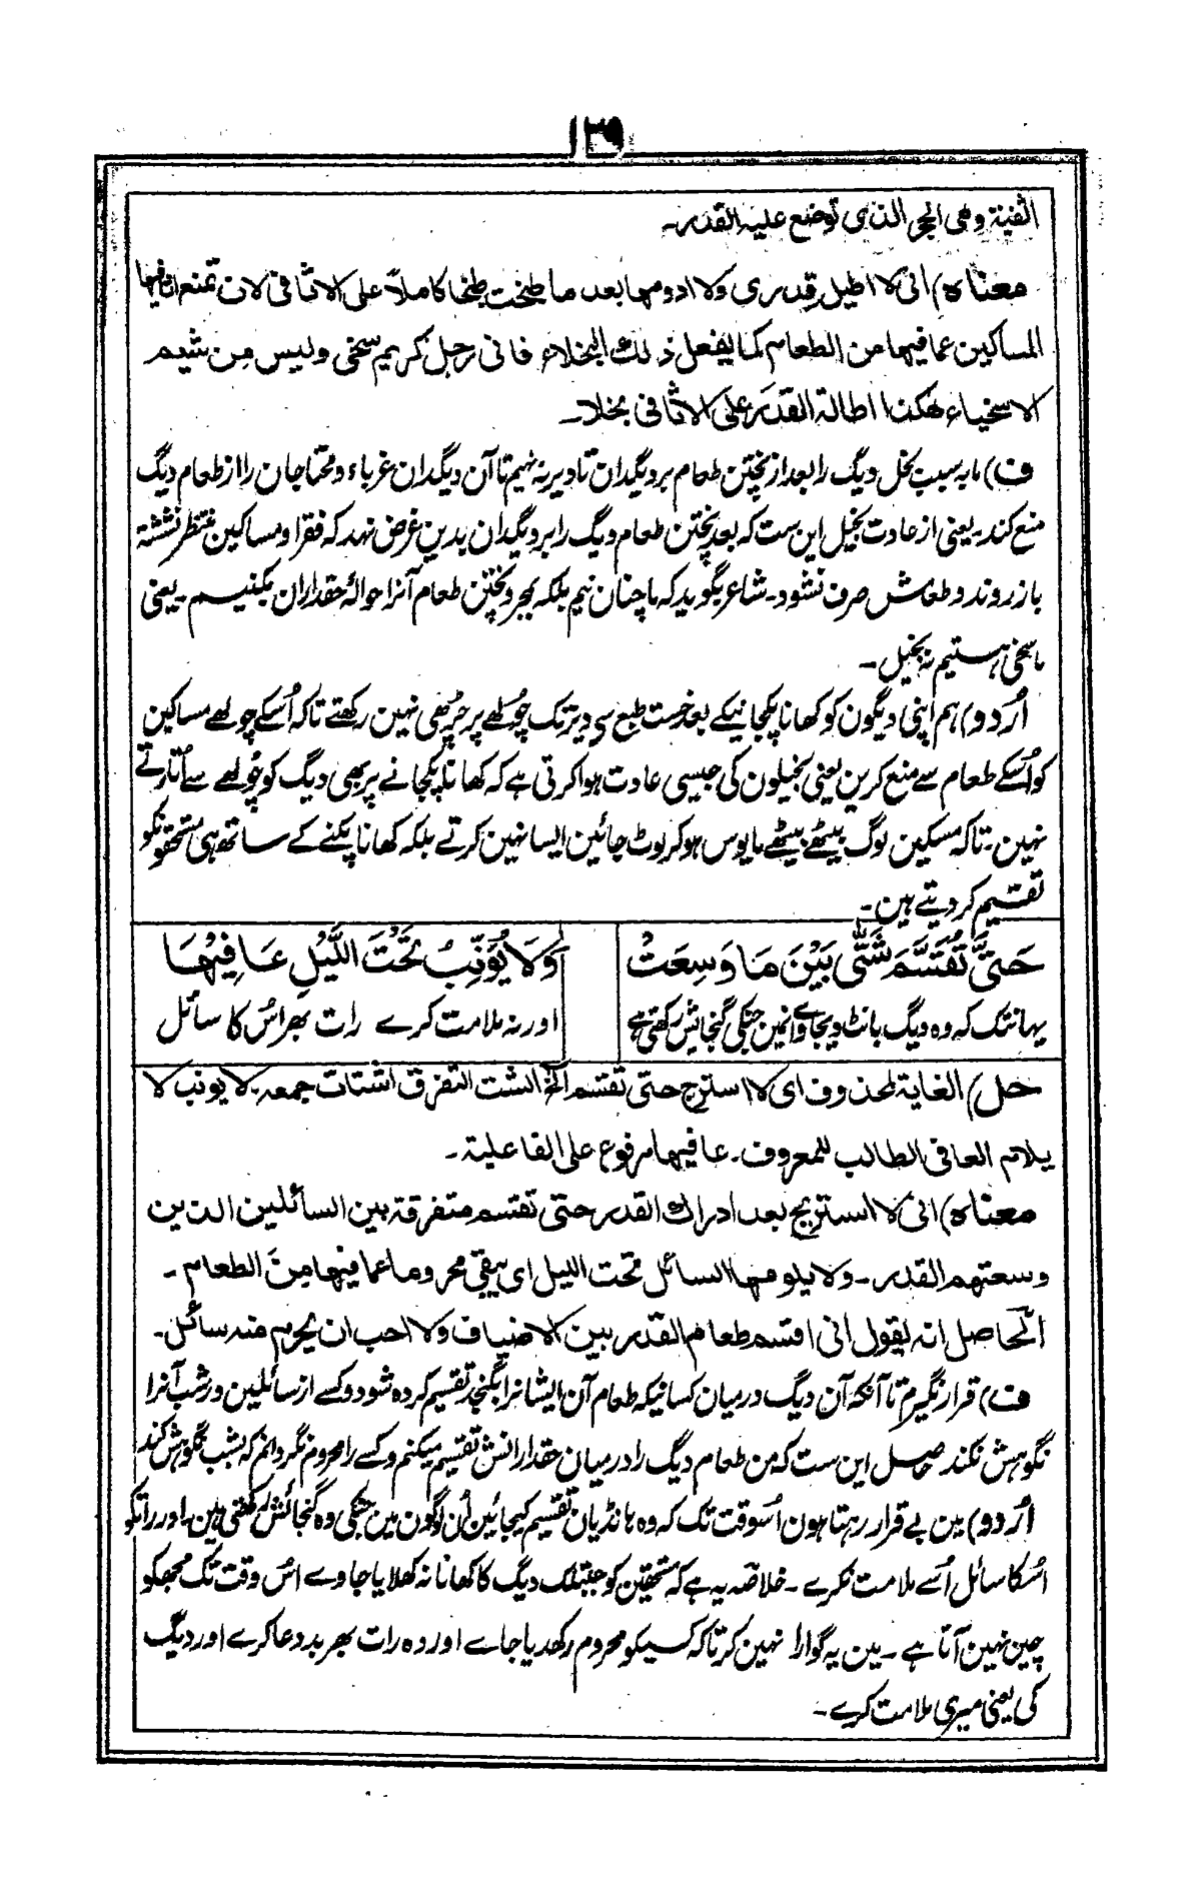 ۱۳۹
اثفية وهى الحجر الذى توضع عليه القدر۔
معناه) انى لا اطيل قدرى ولا ادومها بعد ما طبخت طبخا كاملاً على الاثافى لان تمنع اثافيها
المساكين عما فيها من الطعام كما يفعل ذلك البخلاء فانى رجل كريم سخى وليس من شيم
الاسخياء هكذا اطالة القدر على الاثافى بخلا۔
ف) ما بہ سبب بخل دیگ را بعد از پختن طعام بر دیگدان تا دیر نہ نہیم تا آن دیگدان غرباء و محتاجان را از طعام دیگ
منع کند۔ یعنی از عادت بخیل این ست کہ بعد پختن طعام دیگ را بر دیگدان بدین غرض نہد کہ فقرا و مساکین منتظر نشستہ
باز روند و طعامش صرف نشود۔ شاعر بگوید کہ ما چنان نیم بلکہ بمجرد پختن طعام آنرا حوالۂ حقداران بکنیم۔ یعنی
ما سخی ہستیم نہ بخیل۔
اُردو) ہم اپنی دیگون کو کھانا پکجانیکے بعد خست طبع سی دیر تک چُولھے پر چڑھی نہین رکھتے تاکہ اُسکے چولھے مساکین
کو اُسکے طعام سے منع کرین یعنی بخیلون کی جیسی عادت ہوا کرتی ہے کہ کھانا پکجانے پر بھی دیگ کو چُولھے سے اُتارتے
نہین۔ تاکہ مسکین لوگ بیٹھے بیٹھے مایوس ہوکر لوٹ جائین ایسا نہین کرتے بلکہ کھانا پکنے کے ساتھ ہی مستحقونکو
تقسیم کر دیتے ہین۔
حَتَّى تُقَسَّمَ شَتَّى بَيْنَ مَا وَسِعَتْ
وَلَا يُؤَنِّبُ تَحْتَ اللَّيْلِ عَافِيْهَا
یہانتک کہ وہ دیگ بانٹ دیجاوے انمین جنکی گنجائش رکھتی ہے
اور نہ ملامت کرے رات بھر اُس کا سائل
حل) الغاية لمحذوف اى لا استرح حتى تقسم الخ الشت التفرق اشتات جمعه۔ لا يونب لا
يلام العافى الطالب للمعروف۔ عافيها مرفوع على الفاعلية۔
معناه) انى لا استريح بعد ادراك القدر حتى تقسم متفرقة بين السائلين الذين
وسعتهم القدر۔ ولا يلومها السائل تحت الليل اى يبقى محروما عما فيها مِنَ الطعام۔
الحاصل انه يقول انى اقسم طعام القدر بين الاضياف ولا احب ان يحرم منه سائل۔
ف) قرار نگیرم تا آنکہ آن دیگ درمیان کسانیکہ طعام آن ایشانرا بگنجد تقسیم کردہ شود و کسے از سائلین در شب آنرا
نگوہش نکند حاصل این ست کہ من طعام دیگ را درمیان حقدارانش تقسیم میکنم و کسے را محروم نگردانم کہ بشب نگوہش کند
اُردو) مین بے قرار رہتا ہون اُسوقت تک کہ وہ ہانڈیان تقسیم کیجائین اُن لوگون مین جنکی وہ گنجائش رکھتی ہین۔ اور راتکو
اُسکا سائل اُسے ملامت نکرے۔ خلاصہ یہ ہے کہ مستحقین کو جبتک دیگ کا کھانا نہ کھلایا جاوے اُس وقت تک مجھکو
چین نہین آتا ہے۔ مین یہ گوارا نہین کرتا کہ کسیکو محروم رکھدیا جاے اور وہ رات بھر بددعا کرے اور دیگ
کی یعنی میری ملامت کرے۔